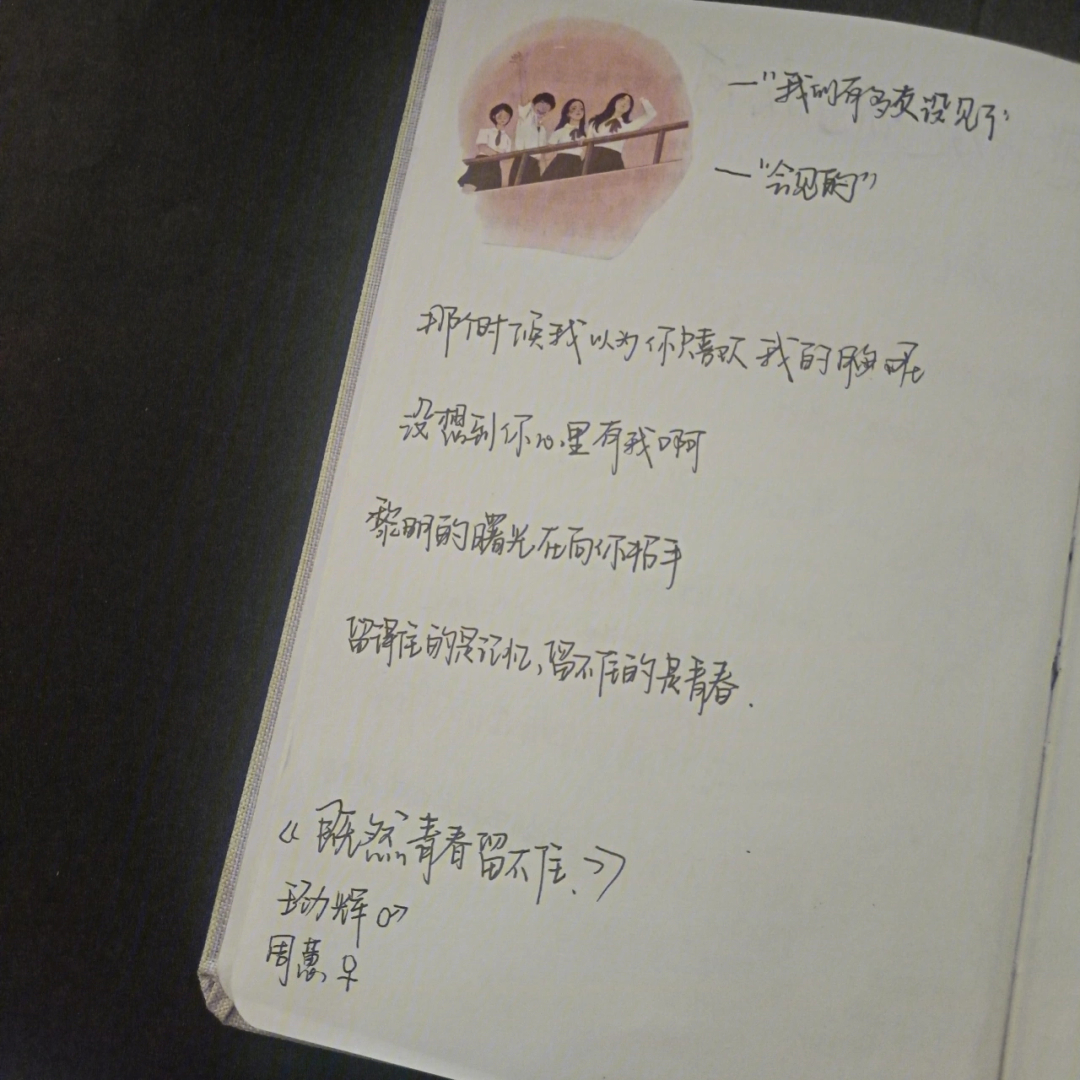 —"我们有多久没见了"
—"会见的"
那个时候我以为你只喜欢我的胸呢
没想到你心里有我啊
黎明的曙光在向你招手
留得住的是记忆,留不住的是青春.
《既然青春留不住》
劲辉♂
周蕙♀